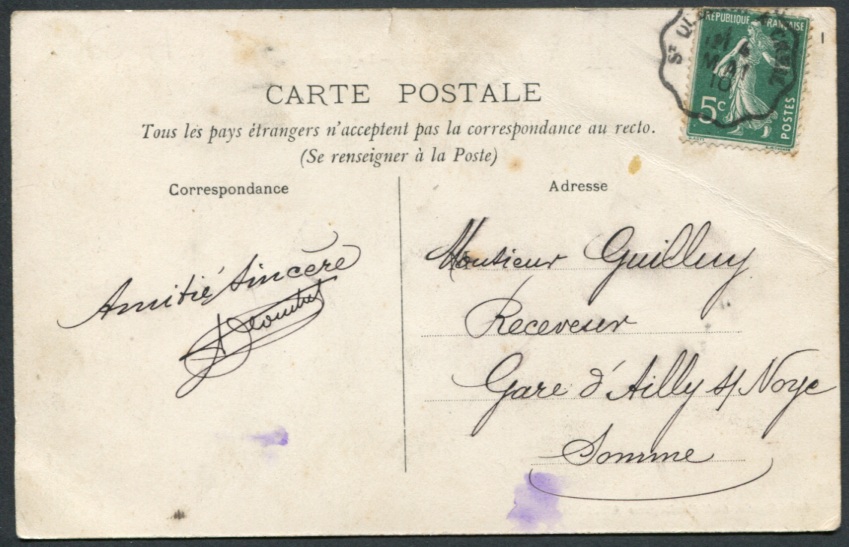 RÉPUBLIQUE FRANÇAISE
1
MAI
10
5c
POSTES
CARTE POSTALE
Tous les pays étrangers n'acceptent pas la correspondance au recto.
(Se renseigner à la Poste)
Correspondance
Amitié Sincère
Adresse
Monsieur Guilluy
Receveur
Gare d'Ailly s/ Noye
Somme